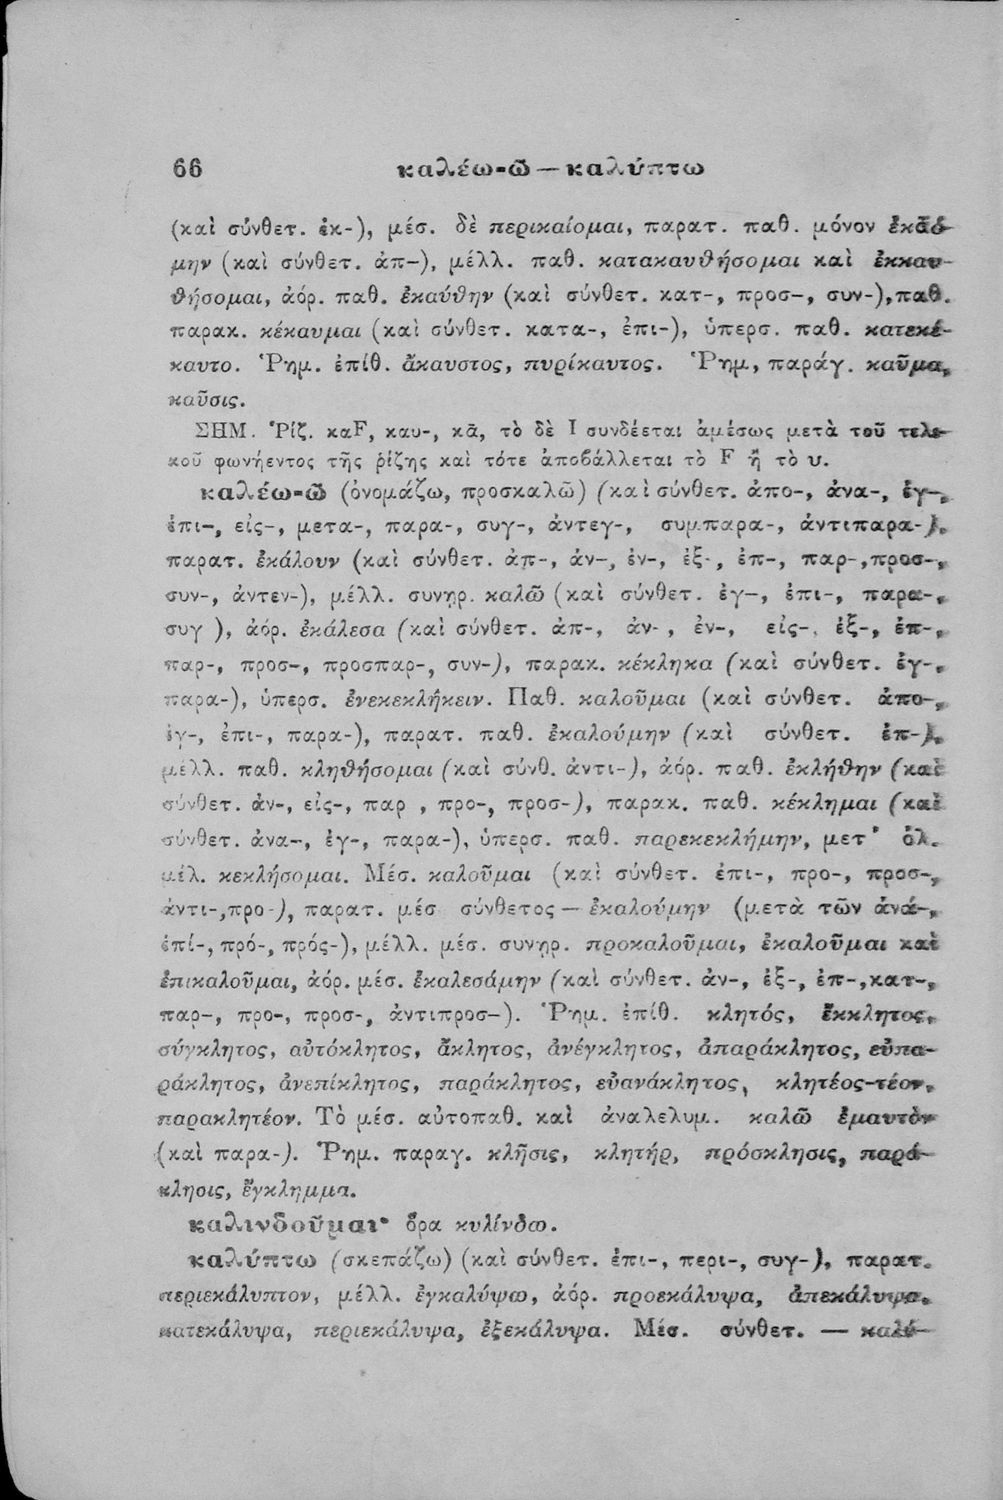 66 καλέω-ῶ — καλύπτω
(καὶ σύνθετ. ἐκ-), μέσ. δὲ περικαίομαι, παρατ. παθ. μόνον
μην (καὶ σύνθετ. ἀπ-), μέλλ. παθ. κατακαυθήσομαι καὶ ἐκκαυ-
θήσομαι, ἀόρ. παθ. ἐκαύθην (καὶ σύνθετ. κατ-, προσ-, συν-), παθ.
παρακ. κέκαυμαι (καὶ σύνθετ. κατα-, ἐπι-), ὑπερσ. παθ. κατεκέ-
καυτο. Ῥημ. ἐπίθ. ἄκαυστος, πυρίκαυτος. Ῥημ, παράγ. καῦμα,
καῦσις.
ΣΗΜ. Ῥίζ. καF, καυ-, κᾱ, τὸ δὲ Ι συνδέεται ἀμέσως μετὰ τοῦ τελι-
κοῦ φωνήεντος τῆς ῥίζης καὶ τότε ἀποβάλλεται τὸ F ἢ τὸ υ.
καλέω-ῶ (ὀνομάζω, προσκαλῶ) (καὶ σύνθετ. ἀπο-, ἀνα-, ἐγ-,
ἐπι-, εἰς-, μετα-, παρα-, συγ-, ἀντεγ-, συμπαρα-, ἀντιπαρα-),
παρατ. ἐκάλουν (καὶ σύνθετ. ἀπ-, ἀν-, ἐν-, ἐξ-, ἐπ-, παρ-, προσ-,
συν-, ἀντεν-), μέλλ. συνῃρ. καλῶ (καὶ σύνθετ. ἐγ-, ἐπι-, παρα-,
συγ ), ἀόρ. ἐκάλεσα (καὶ σύνθετ. ἀπ-, ἀν- , ἐν-, εἰς-, ἐξ-, ἐπ-,
παρ-, προσ-, προσπαρ-, συν-), παρακ. κέκληκα (καὶ σύνθετ. ἐγ-,
παρα-), ὑπερσ. ἐνεκεκλήκειν. Παθ. καλοῦμαι (καὶ σύνθετ. ἀπο-,
ἐγ-, ἐπι-, παρα-), παρατ. παθ. ἐκαλούμην (καὶ σύνθετ. ἐπ-),
μέλλ. παθ. κληθήσομαι (καὶ σύνθ. ἀντι-), ἀόρ. παθ. ἐκλήθην (καὶ
σύνθετ. ἀν-, εἰς-, παρ , προ-, προσ-), παρακ. παθ. κέκλημαι (καὶ
σύνθετ. ἀνα-, ἐγ-, παρα-), ὑπερσ. παθ. παρεκεκλήμην, μετ' ὀλ.
μέλ. κεκλήσομαι. Μέσ. καλοῦμαι (καὶ σύνθετ. ἐπι-, προ-, προσ-,
ἀντι-,προ-), παρατ. μέσ σύνθετος — ἐκαλούμην (μετὰ τῶν ἀνά-,
ἐπί-, πρό-, πρός-), μέλλ. μέσ. συνῃρ. προκαλοῦμαι, ἐκαλοῦμαι καὶ
ἐπικαλοῦμαι, ἀόρ. μέσ. ἐκαλεσάμην (καὶ σύνθετ. ἀν-, ἐξ-, ἐπ-, κατ-,
παρ-, προ-, προσ-, ἀντιπροσ-). Ῥημ. ἐπίθ. κλητός, ἔκκλητος,
σύγκλητος, αὐτόκλητος, ἄκλητος, ἀνέγκλητος, ἀπαράκλητος, εὐπα-
ράκλητος, ἀνεπίκλητος, παράκλητος, εὐανάκλητος, κλητέος-τέον,
παρακλητέον. Τὸ μέσ. αὐτοπαθ. καὶ ἀναλελυμ. καλῶ ἐμαυτὸν
(καὶ παρα-). Ῥημ. παραγ. κλῆσις, κλητήρ, πρόσκλησις, παρά-
κλησις, ἔγκλημμα.
καλινδοῦμαι· ὅρα κυλίνδω.
καλύπτω (σκεπάζω) (καὶ σύνθετ. ἐπι-, περι-, συγ-), παρατ.
περιεκάλυπτον, μέλλ. ἐγκαλύψω, ἀόρ. προεκάλυψα, ἀπεκάλυψα,
κατεκάλυψα, περιεκάλυψα, ἐξεκάλυψα. Μέσ. σύνθετ. — καλύ-